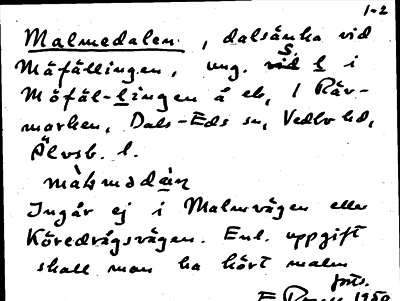 1-2
Malmedalen, dalsänka vid
Mäfällingen, ung. S. l i
Möfäl-lingen å ek, i Räv-
marken, Dals-Eds sn, Vedbo hd,
Älvsb. l.
Ingår ej i Malmvägen eller
Köredrågsvägen. Enl. uppgift
skall man ha hört malm
forts.
1950